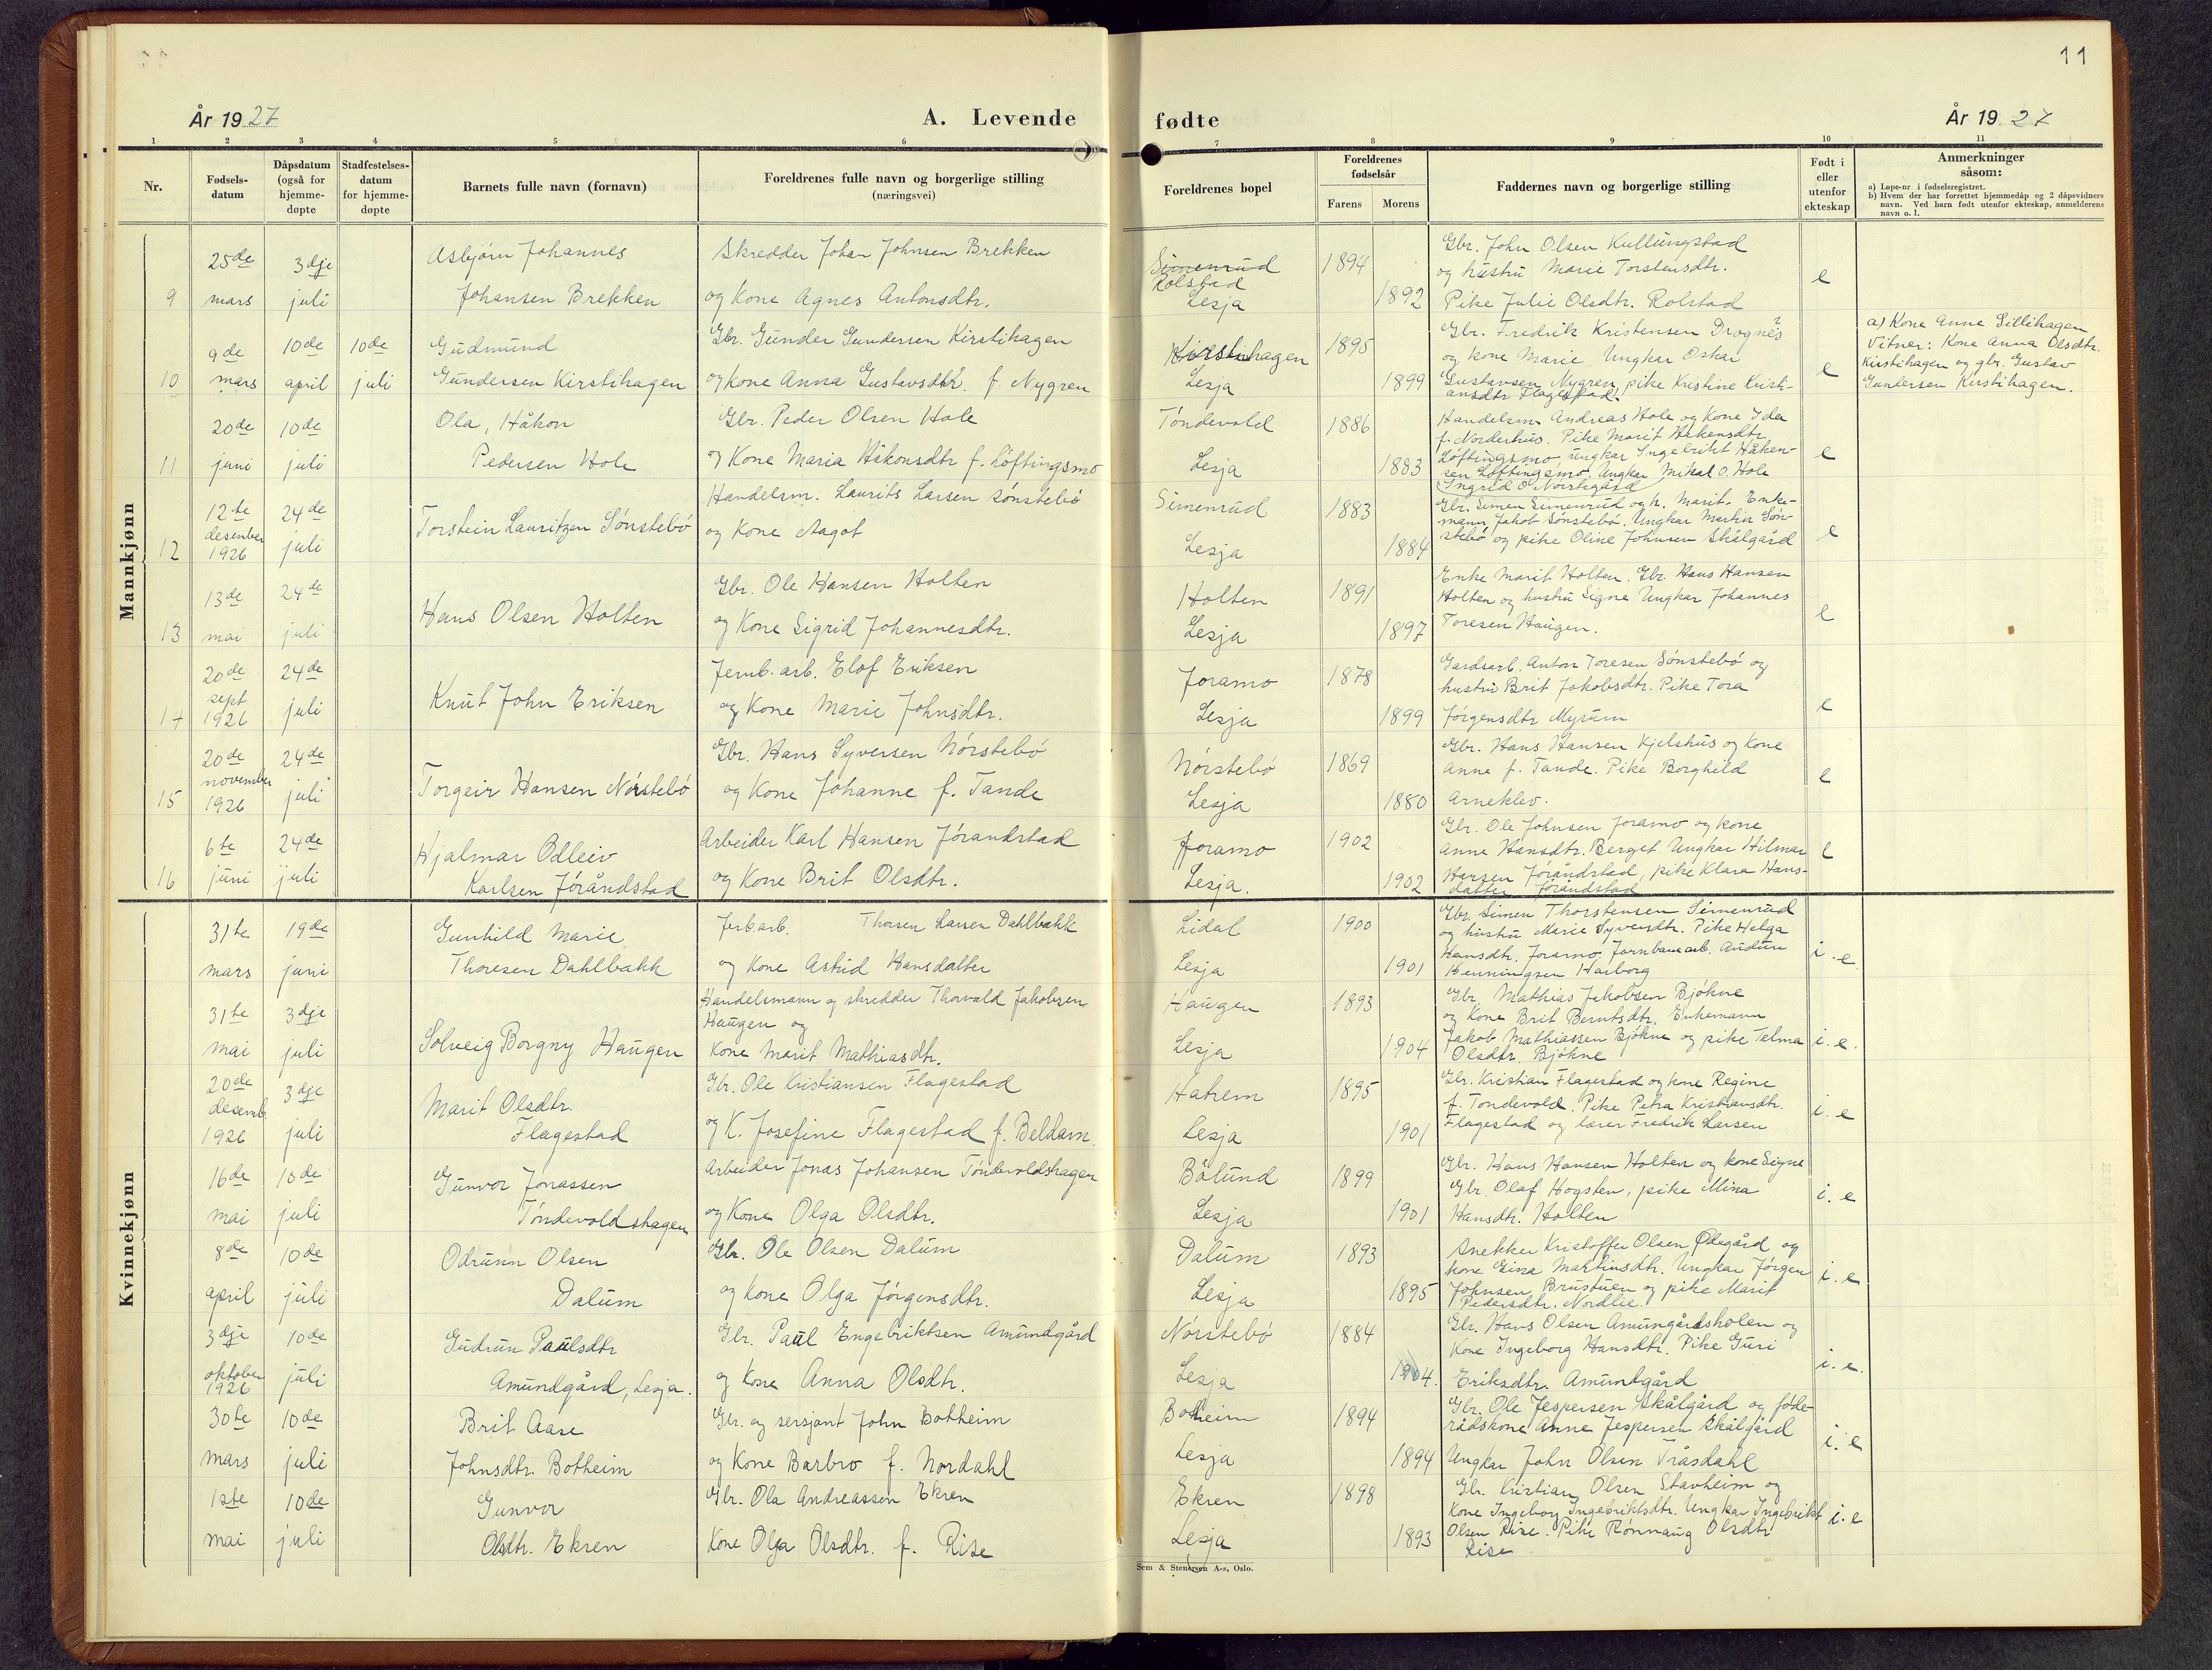 11
År 1927
A. Levende
fødte
År 1927
1 2 3 4 5 6 7 8 9 10 11
Nr.
Fødsels-
datum
Dåpsdatum
(også for
hjemme-
døpte
Stadfestelses-
datum
for hjemme-
døpte
Barnets fulle navn (fornavn)
Foreldrenes fulle navn og borgerlige stilling
(næringsvei)
Foreldrenes bopel
Foreldrenes
fødselsår
Farens
Morens
Faddernes navn og borgerlige stilling
Født i
eller
utenfor
ekteskap
Anmerkninger
såsom:
a) Løpe-nr. i fødselsregistret.
b) Hvem der har forrettet hjemmedåp og 2 dåpsvidners
navn. Ved barn født utenfor ekteskap, anmelderens
navn o. l.
Mannkjønn
9
25de
mars
3dje
juli
Asbjørn Johannes
Johansen Brekken
Skredder Johan Johnsen Brekken
og Kone Agnes Antonsdtr.
Simenrud
Rolstad
Lesja
1894
1892
Gbr. John Olsen Kullungstad
og hustru Marie Torstensdtr.
Pike Julie Olsdtr. Rolstad
e
10
9de
mars
10de
april
10de
juli
Gudmund
Gundersen Kirstihagen
Gbr. Gunder Gundersen Kirstihagen
og kone Anna Gustavsdtr. f. Nygren
Kirstihagen
Lesja
1895
1899
Gbr. Fredrik Kristensen Drognes
og kone Marie. Ungkar Oskar
Gustavsen Nygren, pike Kristine Kristi-
ansdtr Flagestad.
e
a) Kone Anne Sillihagen
Vitner: Kone Anna Olsdtr.
Kirstihagen og gbr. Gustav
Gundersen Kirstihagen.
11
20de
juni
10de
juli
Ola, Håkon
Pedersen Hole
Gbr. Peder Olsen Hole
og Kone Maria Håkonsdtr f. Løftingsmo
Tøndevold
Lesja
1886
1883
Handelsm. Andreas Hole og Kone Ida
f. Norderhus. Pike Marit Håkensdtr
Løftingsmo, ungkar Ingebrikt Håken-
sen Løftingsmo. Ungkar Mikal O. Hole
Ingrid O Nørstegård
e
12
12te
desember
1926
24de
juli
Torstein Lauritzen Sønstebø
Handelsm. Laurits Larsen Sønstebø
og Kone Aagot
Simenrud
Lesja
1883
1884
Gbr. Simen Simenrud og h. Marit. Enke-
mann Jakob Sønstebø. Ungkar Martin Søn-
stebø og pike Oline Johnsen Skålgård
e
13
13de
mai
24de
juli
Hans Olsen Holten
Gbr. Ole Hansen Holten
og Kone Sigrid Johannesdtr.
Holten
Lesja
1891
1897
Enke Marit Holten. Gbr. Hans Hansen
Holten og hustru Signe Ungkar Johannes
Toresen Haugen.
e
14
20de
sept
1926
24de
juli
Knut John Eriksen
Jernb. arb. Elof Eriksen
og Kone Marie Johnsdtr.
Joramo
Lesja
1878
1899
Gardsarb. Anton Toresen Sønstebø og
hustru Brit Jakobsdtr. Pike Tora
Jørgensdtr Myrum
e
15
20de
november
1926
24de
juli
Torgeir Hansen Nørstebø
Gbr. Hans Syversen Nørstebø
og Kone Johanne f. Tande
Nørstebø
Lesja
1869
1880
Gbr. Hans Hansen Kjelshus og Kone
Anne f. Tande. Pike Borghild
Arneklev.
e
16
6te
juni
24de
juli
Hjalmar Odleiv
Karlsen Jørandstad
Arbeider Karl Hansen Jørandstad
og Kone Brit Olsdtr.
Joramo
Lesja.
1902
1902
Gbr. Ole Johnsen Joramo og kone
Anne Hansdtr. Berget Ungkar Hilmar
Hansen Jørandstad, pike Klara Hans-
datter Jørandstad
e
Kvinnekjønn
31te
mars
19de
juni
Gunhild Marie
Thoresen Dahlbakk
Jerb.arb. Thorsen Larsen Dahlbakk
og Kone Astrid Hansdatter
Lidal
Lesja
1900
1901
Gbr. Simen Thorstensen Simenrud
og hustru Marie Syversdtr. Pike Helga
Hansdtr. Joramo. Jarnbanearb. Audun
Henningsen Haiborg
i. e.
31te
mai
3dje
juli
Solveig Borgny Haugen
Handelsmann og skredder Thorvald Jakobsen
Haugen og
Kone Marit Mathiasdtr.
Haugen
Lesja
1893
1904
Gbr. Mathias Jakobsen Bjøkne
og Kone Brit Berntsdtr. Enkemann
Jakob Mathiassen Bjøkne og pike Telma
Olsdtr. Bjøkne
i. e.
20de
desemb
1926
3dje
juli
Marit Olsdtr.
Flagestad
Gbr. Ole Kristiansen Flagestad
og K. Josefine Flagestad f. Beldam.
Hatrem
Lesja
1895
1901
Gbr. Kristian Flagestad og kone Regine
f. Tondevold. Pike Petra Kristiansdtr.
Flagestad og lærer Fredrik Larsen
i. e
16de
mai
10de
juli
Gunvor Jonassen
Tøndevoldshagen
Arbeider Jonas Johansen Tøndevoldshagen
og Kone Olga Olsdtr.
Bølund
Lesja
1899
1901
Gbr. Hans Hansen Holten og kone Signe
Gbr. Olaf Hogsten, pike Mina
Hansdtr. Holten
i. e
8de
april
10de
juli
Odrunn Olsen
Dalum
Gbr. Ole Olsen Dalum
og kone Olga Jørgensdtr.
Dalum
Lesja
1893
1895
Snekker Kristoffer Olsen Ødegård og
kone Gina Martinsdtr. Ungkar Jørgen
Johnsen Brustuen og pike Marit
Pedersdtr. Nordlie.
i. e
3dje
oktober
1926
10de
juli
Gudrun Paulsdtr
Amundgård, Lesja.
Gbr. Paul Engebriktsen Amundgård
og Kone Anna Olsdtr.
Nørstebø
Lesja
1884
1904.
Gbr. Hans Olsen Amungårdsholen og
Kone Ingeborg Hansdtr. Pike Guri
Eriksdtr. Amundgård
i. e.
30te
mars
10de
juli
Brit Aase
Johnsdtr. Botheim
Gbr. og sersjant John Botheim
og Kone Barbro f. Nordahl
Botheim
Lesja
1894
1894
Gbr. Ole Jespersen Skålgård og føde-
rådskone Anne Jespersen Skålgård
Ungkar John Olsen Tråsdahl
i. e
1ste
mai
10de
juli
Gunvor
Olsdtr. Ekren
Gbr. Ola Andreassen Ekren
Kone Olga Olsdtr. f. Rise
Ekren
Lesja
1898
1893
Gbr. Kristian Olsen Stavheim og
Kone Ingeborg Ingebriktsdtr. Ungkar Ingebrikt
Olsen Rise. Pike Rønnaug Olsdtr
Rise
i. e
Sem & Stenersen A-s, Oslo.